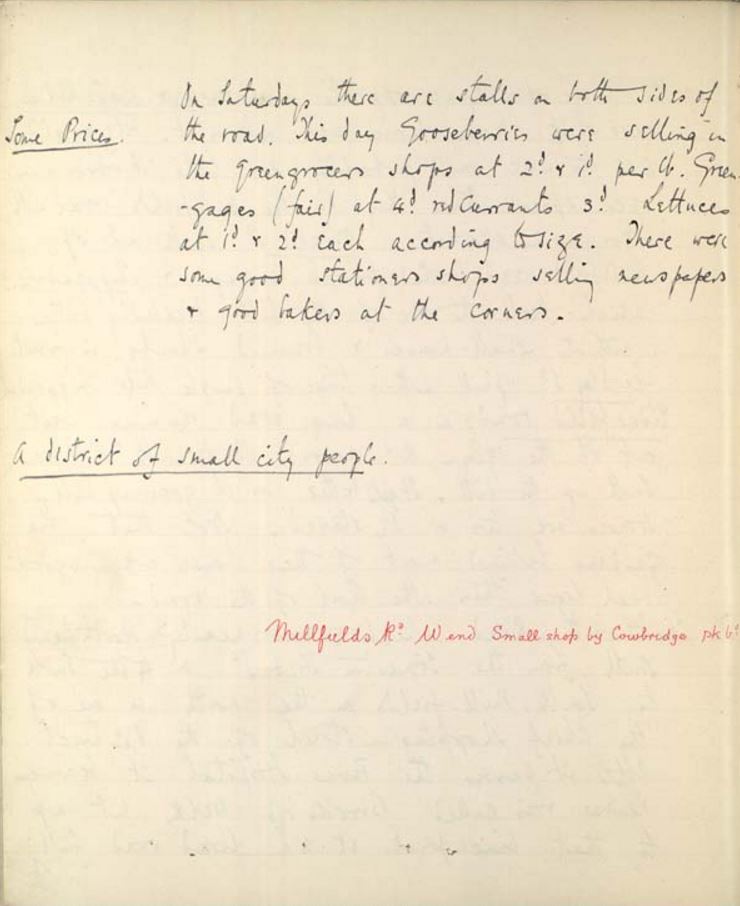 On Saturdays there are stalls on both sides of
Some Prices. the road. This day Gooseberries were selling in
the greengrocers shops at 2d & 1d per lb. Green-
-gages (fair) at 4d red Currants 3d Lettuces
at 1d & 2d Each according to size. There were
some good stationers shops selling newspapers
& good bakers at the corners.
A district of small city people.
Millfields Rd W end Small shop by Cowbridge pk 6d